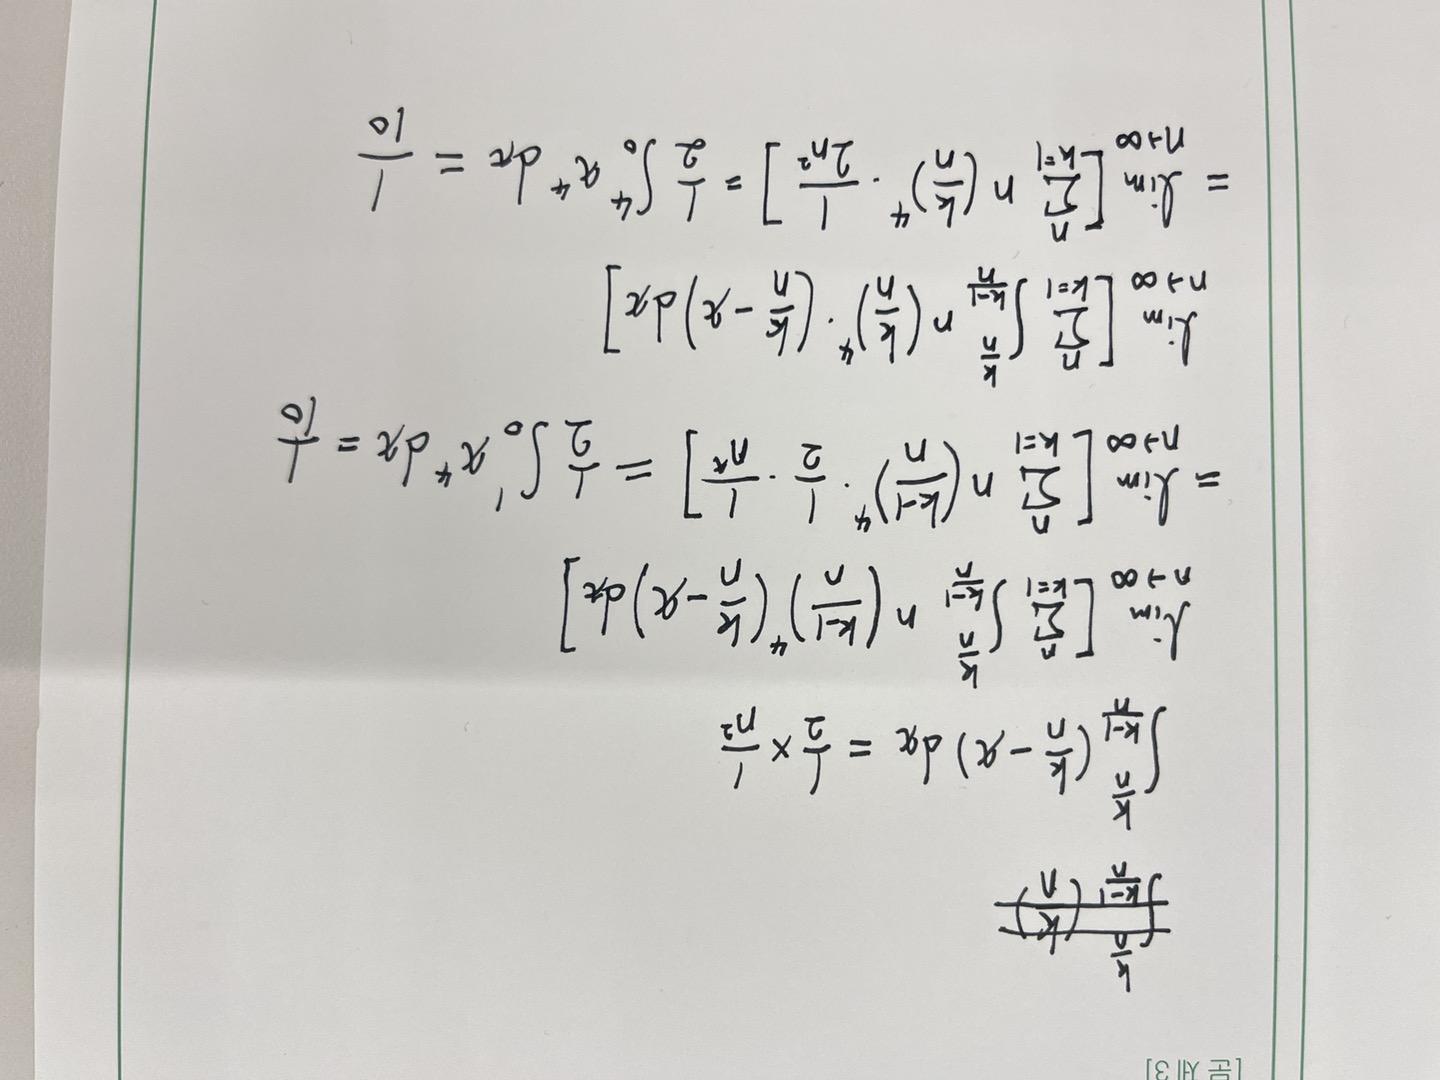 [문제 3]
∫_{\frac{k-1}{n}}^{\frac{k}{n}} (\frac{k}{n})
∫_{\frac{k-1}{n}}^{\frac{k}{n}} (\frac{k}{n} - x) dx = \frac{1}{2} × \frac{1}{n^2}
lim_{n→∞} [ ∑_{k=1}^{n} ∫_{\frac{k-1}{n}}^{\frac{k}{n}} n (\frac{k-1}{n})^4 (\frac{k}{n} - x) dx ]
= lim_{n→∞} [ ∑_{k=1}^{n} n (\frac{k-1}{n})^4 · \frac{1}{2} · \frac{1}{n^2} ] = \frac{1}{2} ∫_0^1 x^4 dx = \frac{1}{10}
lim_{n→∞} [ ∑_{k=1}^{n} ∫_{\frac{k-1}{n}}^{\frac{k}{n}} n (\frac{k}{n})^4 · (\frac{k}{n} - x) dx ]
= lim_{n→∞} [ ∑_{k=1}^{n} n (\frac{k}{n})^4 · \frac{1}{2n^2} ] = \frac{1}{2} ∫_0^4 x^4 dx = \frac{1}{10}